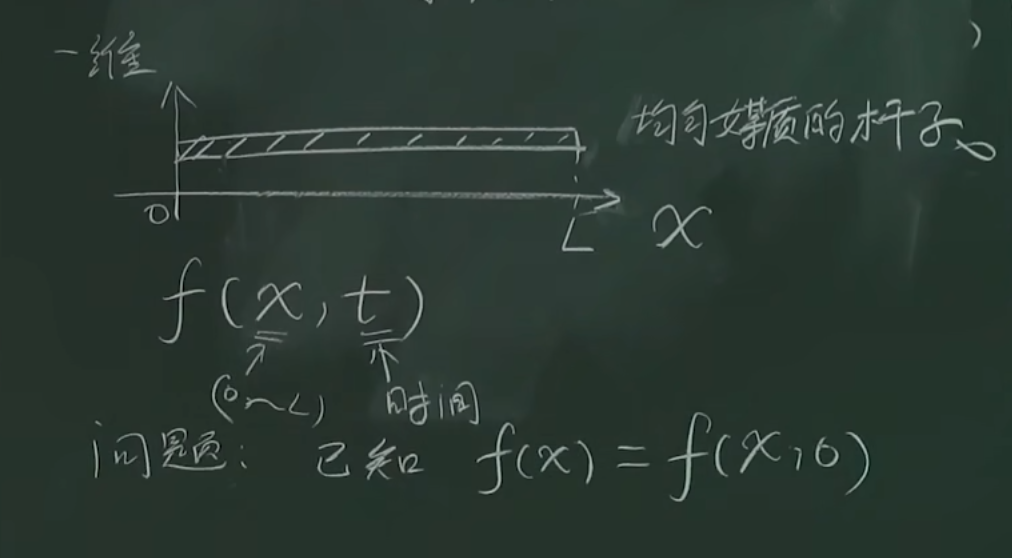 一维
均匀媒质的杆子。
0
L
x
f(x,t)
(0~L) 时间
问题: 已知 f(x)=f(x,0)